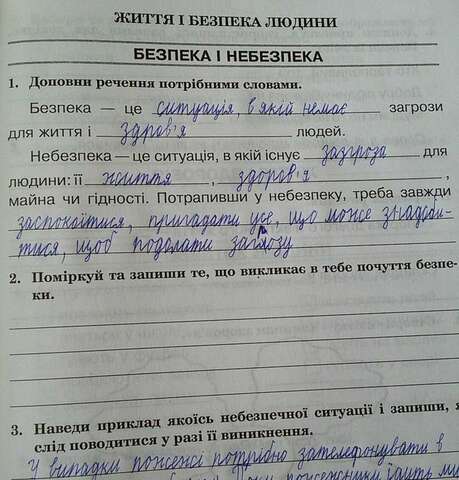 ЖИТТЯ І БЕЗПЕКА ЛЮДИНИ
БЕЗПЕКА І НЕБЕЗПЕКА
1. Доповни речення потрібними словами.
Безпека — це ситуація, в якій немає загрози
для життя і здров'я людей.
Небезпека — це ситуація, в якій існує загроза для
людини: її життя, здоров'я,
майна чи гідності. Потрапивши у небезпеку, треба завжди
заспокоїтися, пригадати усе, що може знадоби-
тися, щоб подолати загрозу
2. Поміркуй та запиши те, що викликає в тебе почуття безпе-
ки.
3. Наведи приклад якоїсь небезпечної ситуації і запиши, я
слід поводитися у разі її виникнення.
У випадки пожежі потрібно зателефонувати в
пожежники їдуть